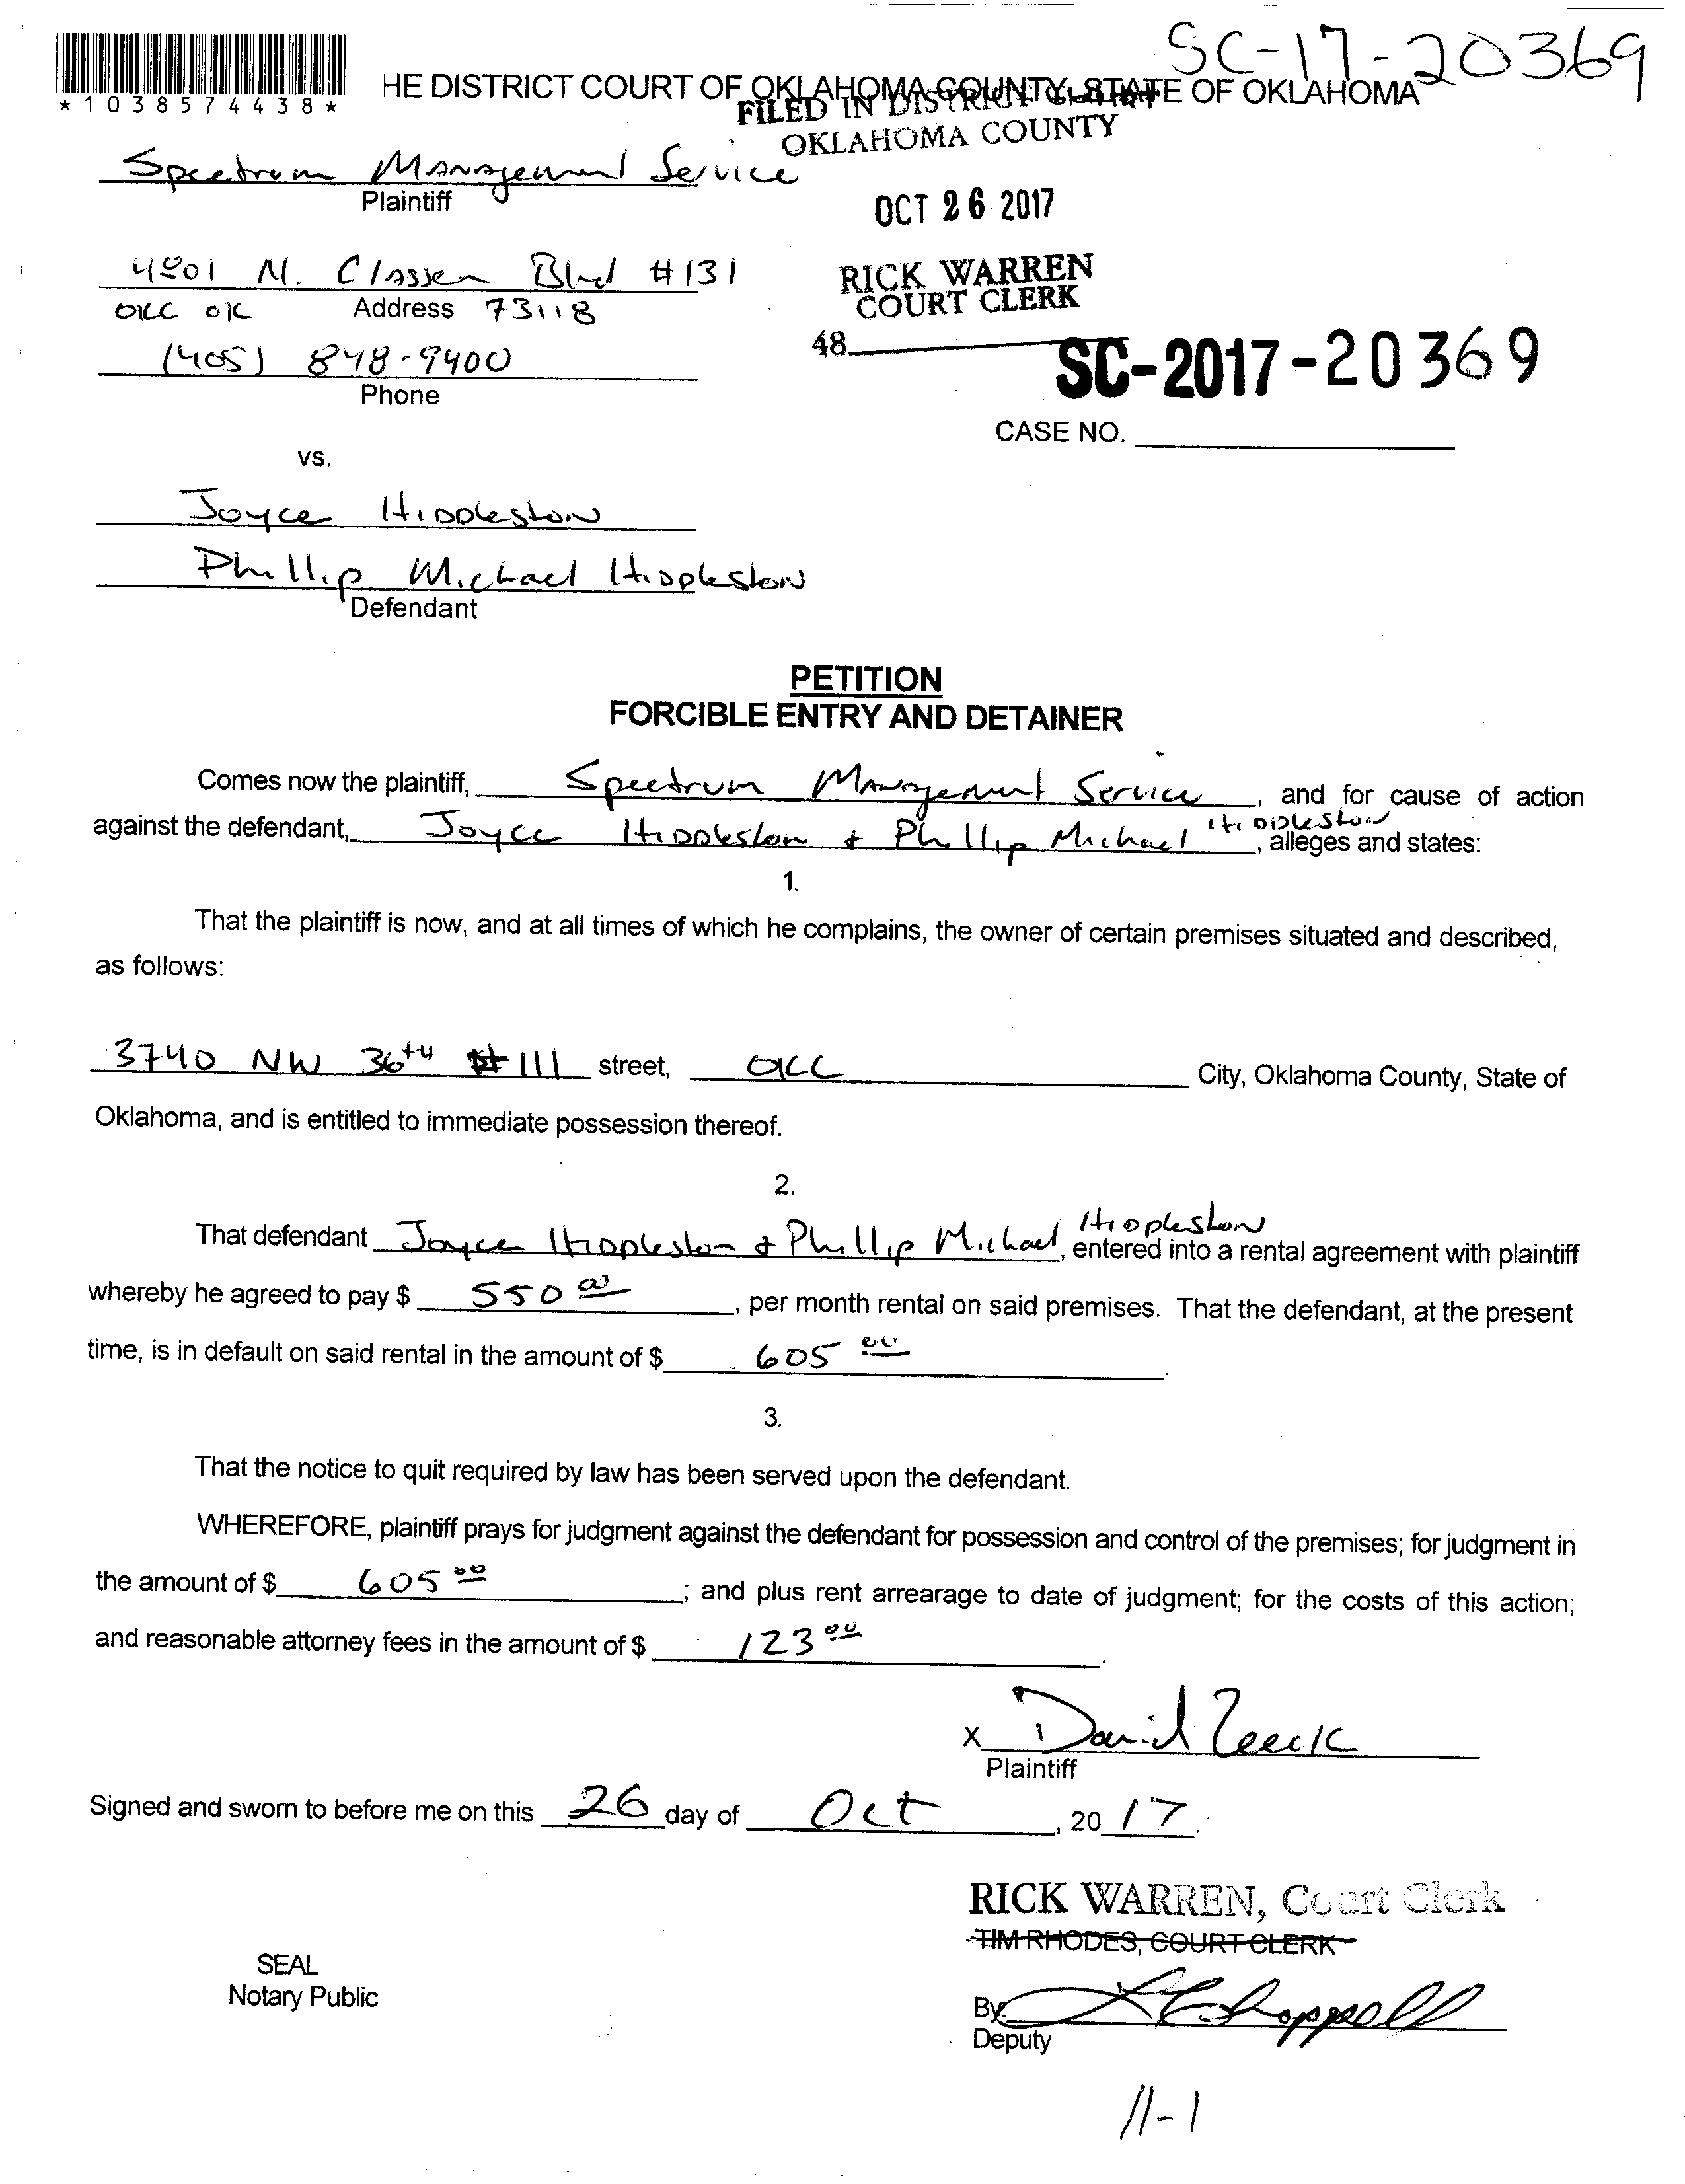 SC-17-20369
*1038574438*
HE DISTRICT COURT OF OKLAHOMA COUNTY, STATE OF OKLAHOMA
FILED IN DISTRICT COURT
OKLAHOMA COUNTY
Spectrum Management Service
Plaintiff
OCT 26 2017
4801 N. Classen Blvd #131
OKC OK Address 73118
RICK WARREN
COURT CLERK
(405) 848-9400
Phone
48
SC-2017-20369
CASE NO.
vs.
Joyce Hiddleston
Phillip Michael Hiddleston
Defendant
PETITION
FORCIBLE ENTRY AND DETAINER
Comes now the plaintiff, Spectrum Management Service, and for cause of action
against the defendant, Joyce Hiddleston + Phillip Michael Hiddleston, alleges and states:
1.
That the plaintiff is now, and at all times of which he complains, the owner of certain premises situated and described,
as follows:
3740 NW 36th #111 street, OKC City, Oklahoma County, State of
Oklahoma, and is entitled to immediate possession thereof.
2.
That defendant Joyce Hiddleston + Phillip Michael Hiddleston, entered into a rental agreement with plaintiff
whereby he agreed to pay $ 550 00, per month rental on said premises. That the defendant, at the present
time, is in default on said rental in the amount of $ 605 00.
3.
That the notice to quit required by law has been served upon the defendant.
WHEREFORE, plaintiff prays for judgment against the defendant for possession and control of the premises; for judgment in
the amount of $ 605 00; and plus rent arrearage to date of judgment; for the costs of this action;
and reasonable attorney fees in the amount of $ 123 00.
X David Zeeck
Plaintiff
Signed and sworn to before me on this 26 day of Oct, 2017.
RICK WARREN, Court Clerk
TIM RHODES, COURT CLERK
SEAL
Notary Public
By: Chappell
Deputy
11-1